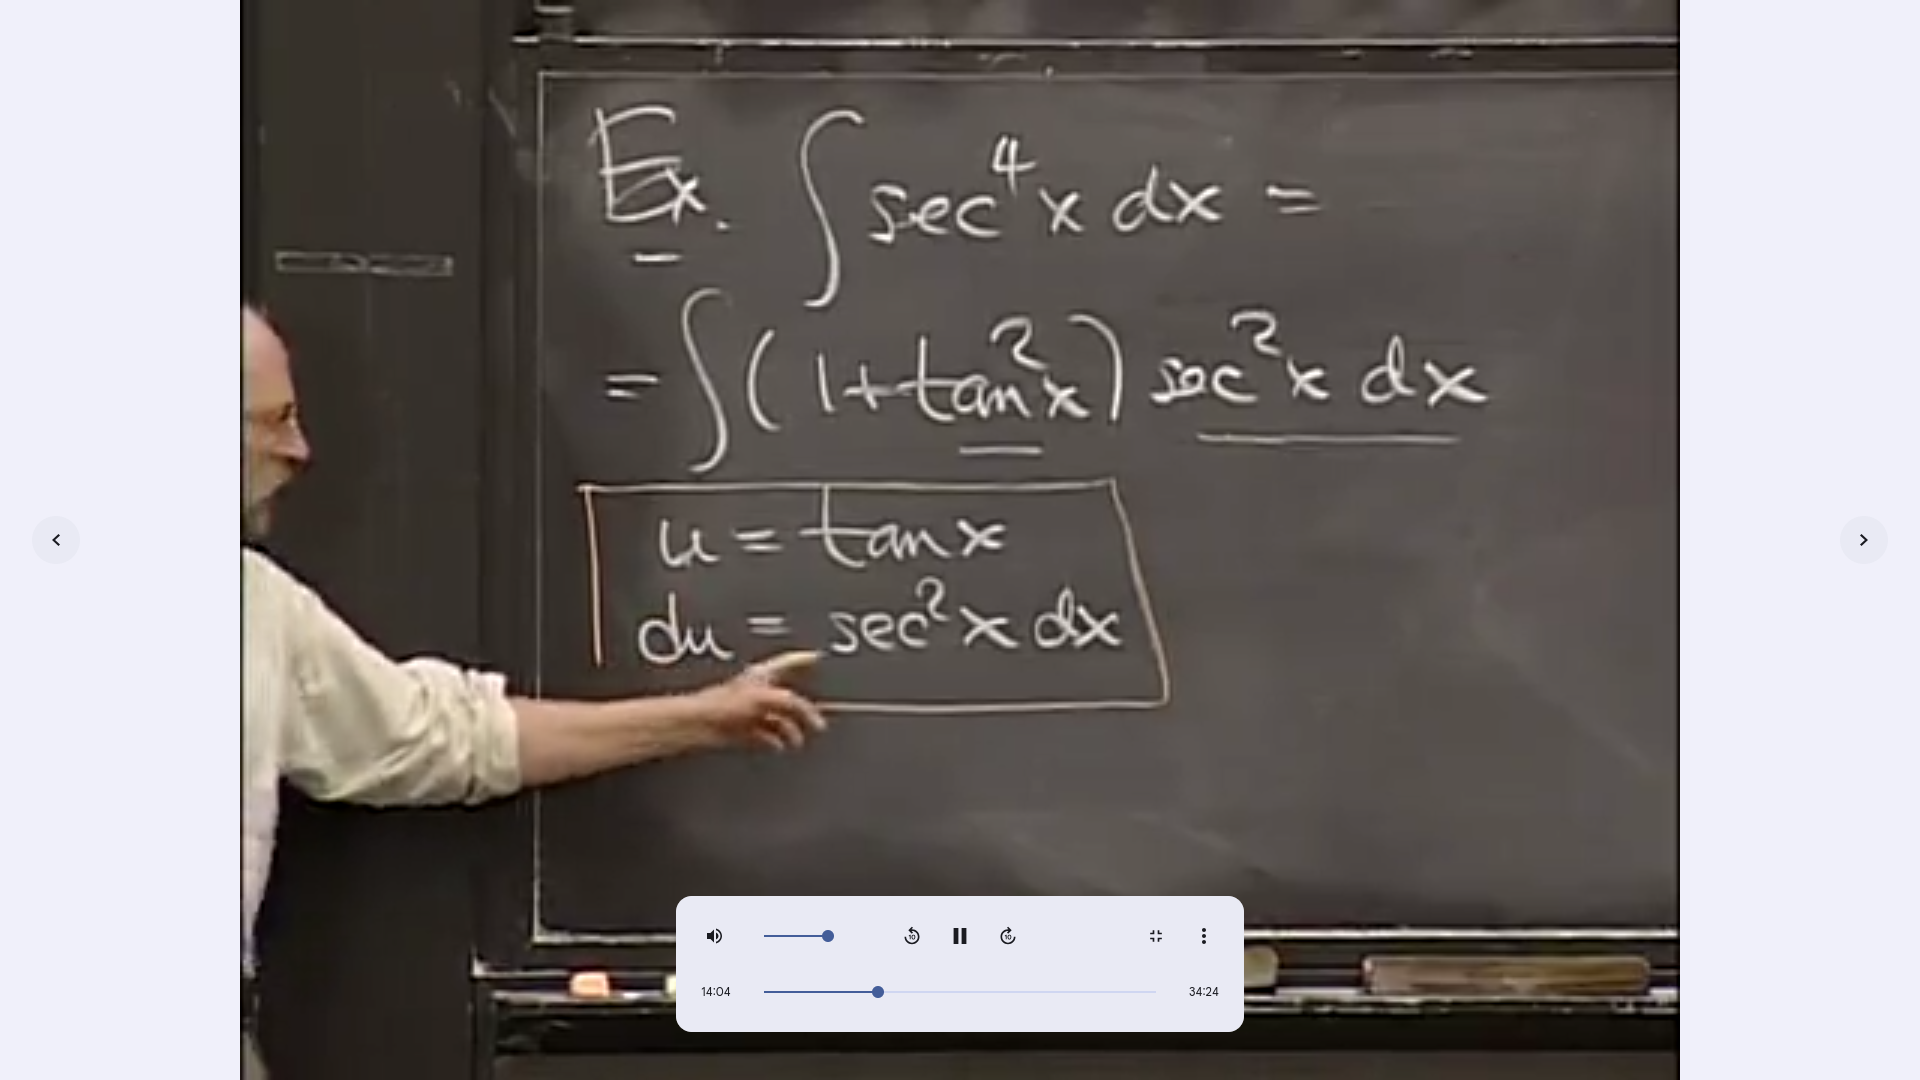 Ex. ∫ sec⁴x dx =
= ∫ (1+tan²x) sec²x dx
u = tan x
du = sec²x dx
10
10
14:04
34:24